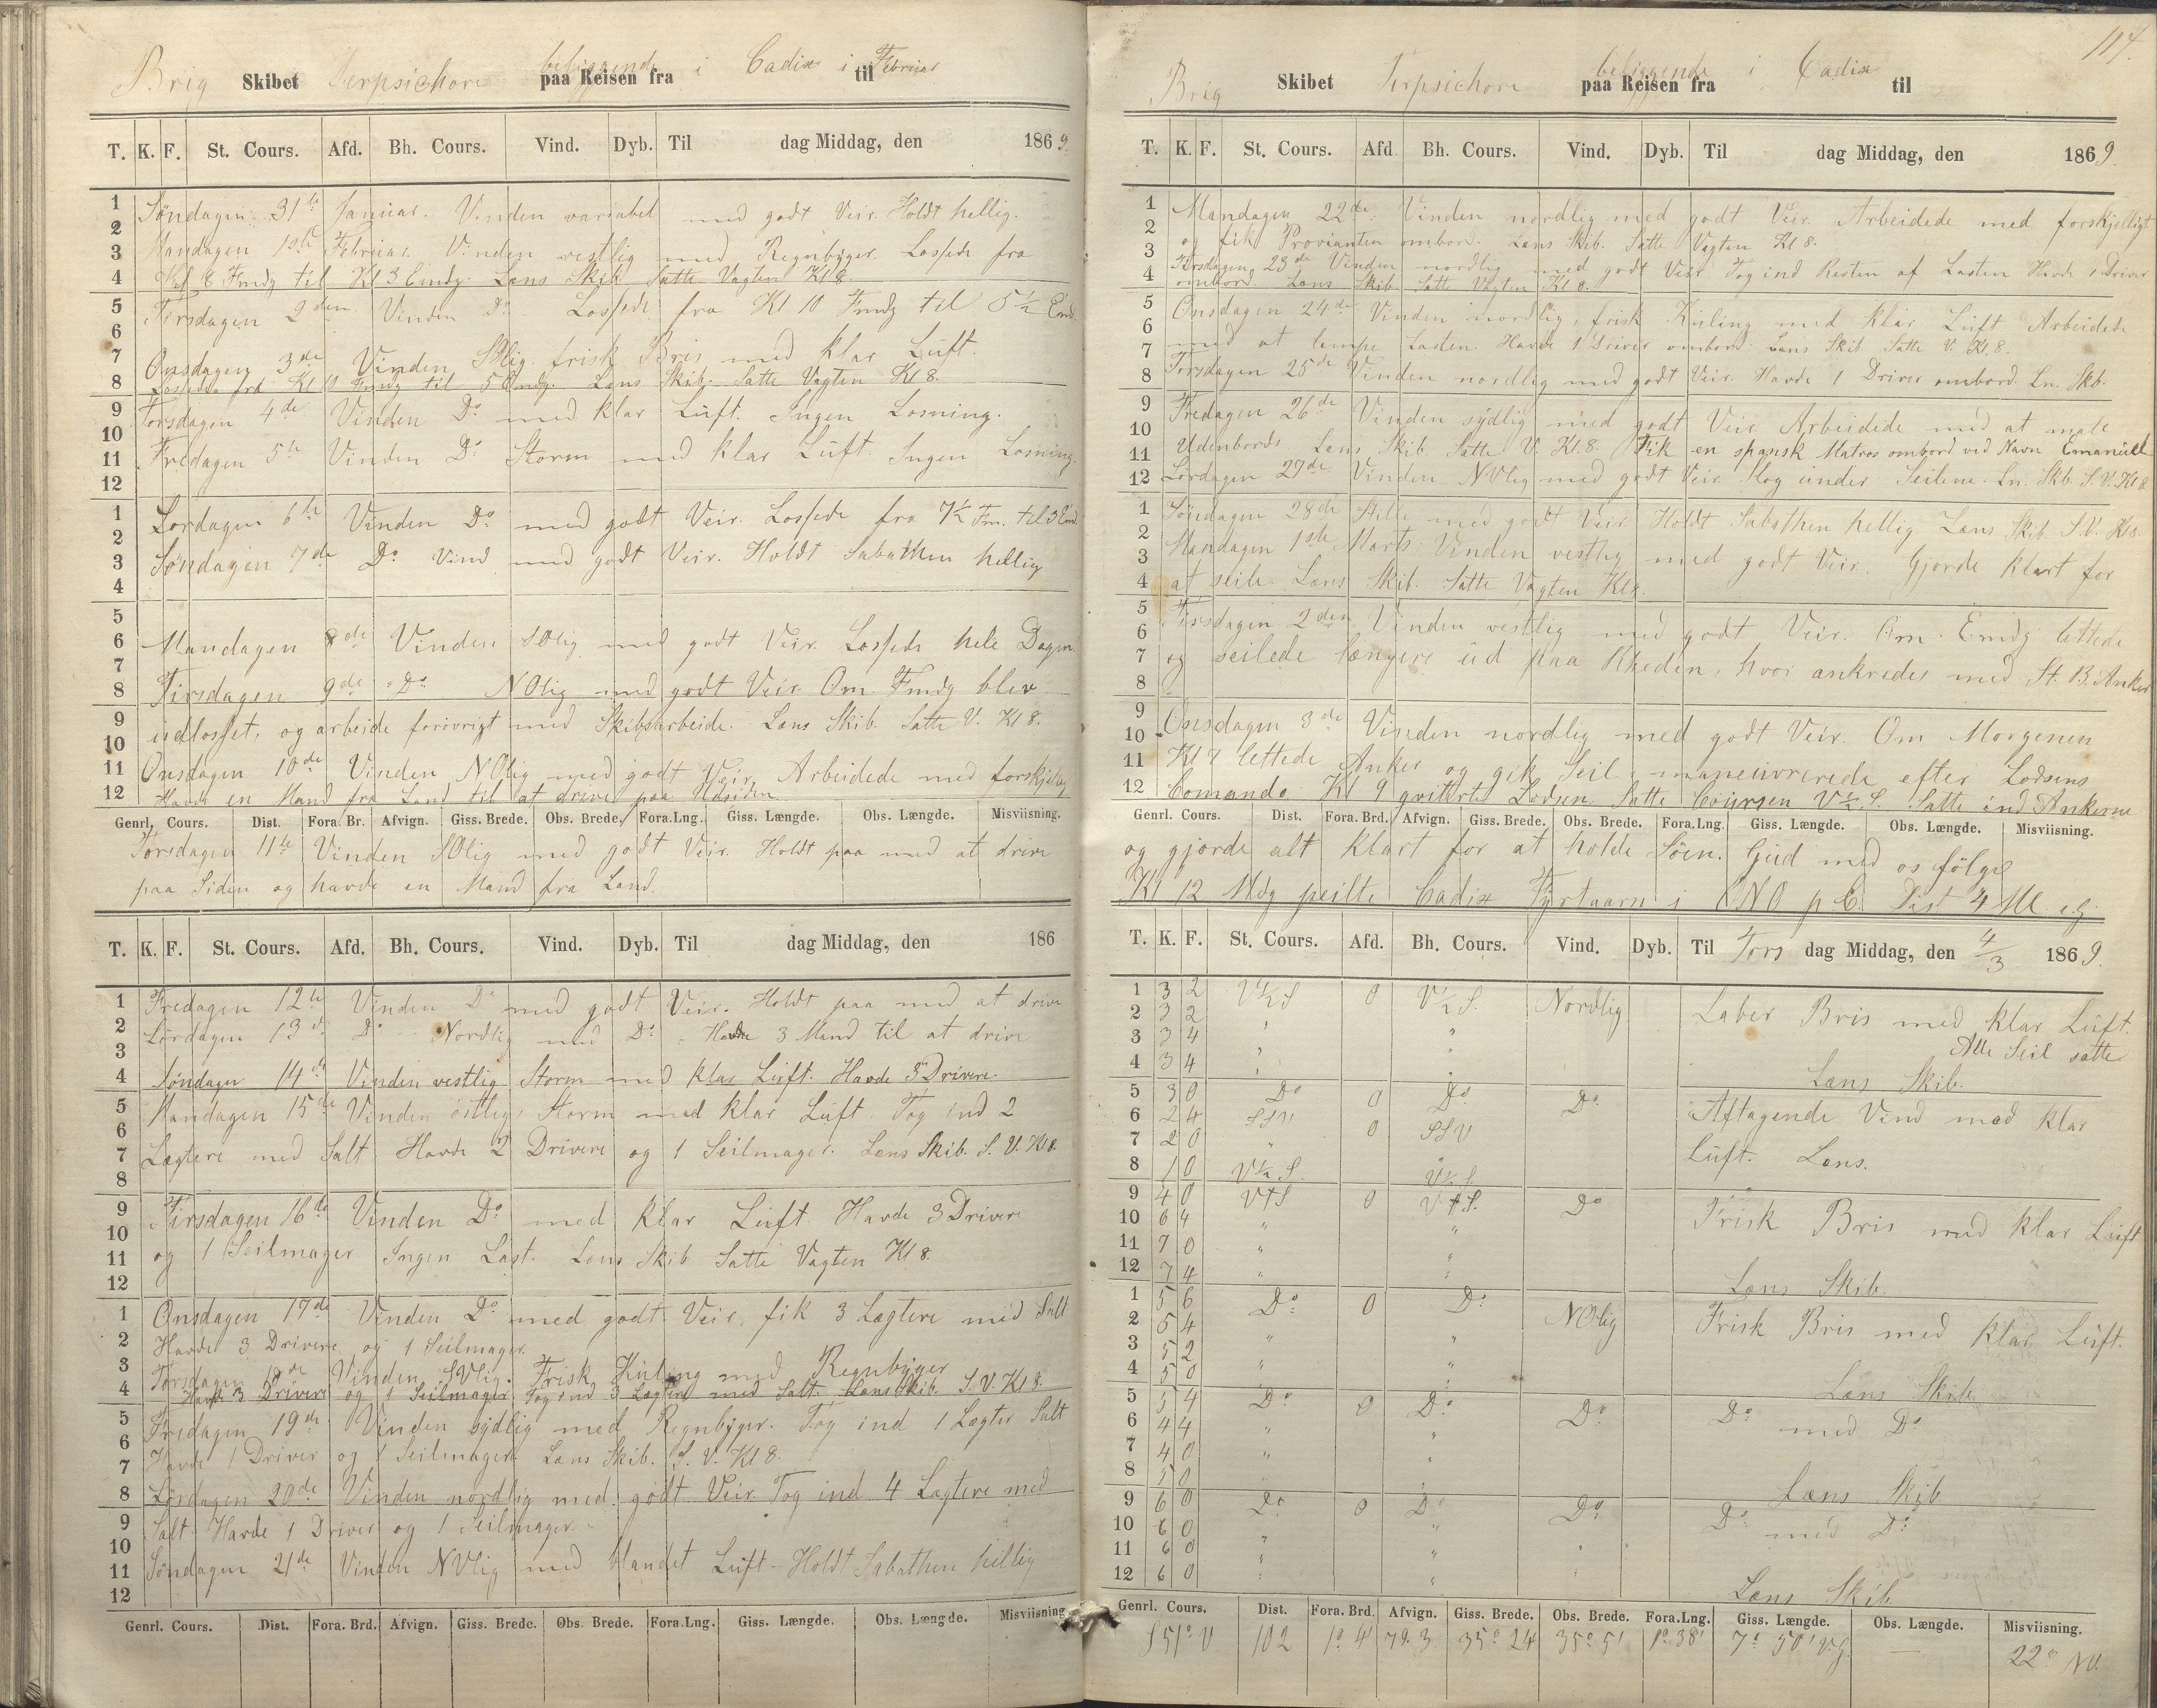 Brig Skibet Terpsichore beliggende paa Reisen fra i Cadix i til Februar
T. K. F. St. Cours. Afd. Bh. Cours. Vind. Dyb. Til dag Middag, den 1869.
Søndagen 31te Januar. Vinden variabel med godt Veir. Holdt hellig.
Mandagen 1ste Februar. Vinden vestlig med Regnbyger. Lossede fra
Kl 8 Fmdg til Kl 3 Emdg. Læns Skib Satte Vagten Kl 8.
Tirsdagen 2den Vinden Do. Lossede fra Kl 10 Fmdg til 5½ Emd.
Onsdagen 3de Vinden SOlig frisk Bris med klar Luft.
Lossede fra Kl 10 Fmdg til 5 Emdg. Læns Skib. Satte Vagten Kl 8.
Torsdagen 4de Vinden Do med klar Luft. Ingen Losning.
Fredagen 5te Vinden Do Storm med klar Luft. Ingen Losning.
Lørdagen 6te Vinden Do med godt Veir. Lossede fra 7½ Fm. til 3 Emd
Søndagen 7de Do Vind med godt Veir. Holdt Sabathen hellig
Mandagen 8de Vinden SOlig med godt Veir. Lossede hele Dagen.
Tirsdagen 9de Do NOlig med godt Veir. Om Fmdg blev
udlosset, og arbeide forøvrigt med Skibsarbeide. Læns Skib. Satte V. Kl 8.
Onsdagen 10de Vinden NOlig med godt Veir. Arbeidede med forskjellig
Havde en Mand fra Land til at drive paa Udsiden.
Genrl. Cours. Dist. Fora. Br. Afvign. Giss. Brede. Obs. Brede. Fora. Lng. Giss. Længde. Obs. Længde. Misviisning.
Torsdagen 11te Vinden SOlig med godt Veir. Holdt paa med at drive
paa Siden og havde en Mand fra Land.
T. K. F. St. Cours. Afd. Bh. Cours. Vind. Dyb. Til dag Middag, den 186
Fredagen 12te Vinden Do med godt Veir. Holdt paa med at drive
Lørdagen 13de Do Nordlig med Do. Havde 3 Mand til at drive
Søndagen 14de Vinden vestlig Storm med klar Luft. Havde 3 Drivere.
Mandagen 15de Vinden østlig, Storm med klar Luft. Tog ind 2
Lægtere med Salt Havde 2 Drivere og 1 Seilmager. Læns Skib. S. V. Kl 8.
Tirsdagen 16de Vinden Do med klar Luft Havde 3 Drivere
og 1 Seilmager Ingen Last. Læns Skib Satte Vagten Kl 8.
Onsdagen 17de Vinden Do med godt Veir, fik 3 Lægtere med Salt
Havde 3 Drivere og 1 Seilmager.
Torsdagen 18de Vinden SVlig. Frisk Kuling med Regnbyger
Havde 3 Drivere og 1 Seilmager Tog ind 3 Lægtere med Salt. Læns Skib. S. V. Kl 8.
Fredagen 19de Vinden sydlig med Regnbyger. Tog ind 1 Lægter Salt
Havde 1 Driver og 1 Seilmager. Læns Skib. S. V. Kl 8.
Lørdagen 20de Vinden nordlig med godt Veir. Tog ind 4 Lægtere med
Salt. Havde 1 Driver og 1 Seilmager.
Søndagen 21de Vinden NVlig med blandet Luft - Holdt Sabathen hellig
Genrl. Cours. Dist. Fora. Brd. Afvign. Giss. Brede. Obs. Brede. Fora. Lng. Giss. Længde. Obs. Længde. Misviisning.
117.
Brig Skibet Terpsichore beliggende paa Reisen fra i Cadix til
T. K. F. St. Cours. Afd. Bh. Cours. Vind. Dyb. Til dag Middag, den 1869.
Mandagen 22de Vinden nordlig med godt Veir. Arbeidede med forskjelligt
og fik Provianten ombord. Læns Skib. Satte Vagten Kl 8.
Tirsdagen 23de Vinden nordlig med godt Veir. Tog ind Resten af Lasten Havde 1 Driver
ombord. Læns Skib. Satte Vagten Kl 8.
Onsdagen 24de Vinden nordlig, frisk Kuling med klar Luft Arbeidede
med at lempe Lasten. Havde 1 Driver ombord. Læns Skib. Satte V. Kl. 8.
Torsdagen 25de Vinden nordlig med godt Veir. Havde 1 Driver ombord. Ln. Skb.
Fredagen 26de Vinden sydlig med godt Veir Arbeidede med at male
Udenbords Læns Skib. Satte V. Kl. 8. Fik en spansk Matros ombord ved Navn Emanuel
Lørdagen 27de Vinden NVlig med godt Veir. Slog under Seilene. Ln. Skb. S. V. Kl 8
Søndagen 28de Stille med godt Veir Holdt Sabathen hellig Læns Skib. S. V. Kl 8.
Mandagen 1ste Marts Vinden vestlig med godt Veir. Gjorde klart for
at seile. Læns Skib. Satte Vagten Kl 8.
Tirsdagen 2den Vinden vestlig med godt Veir. Om Emdg lettede
og seilede længere ud paa Rheden, hvor ankredes med St. B. Anker
Onsdagen 3de Vinden nordlig med godt Veir. Om Morgenen
Kl 7 lettede Anker og gik Seil, maneuvrerede efter Lodsens
Comando. Kl 9 qvitterte Lodsen Satte Coursen V½S. Satte ind Ankerne
Genrl. Cours. Dist. Fora. Brd. Afvign. Giss. Brede. Obs. Brede. Fora. Lng. Giss. Længde. Obs. Længde. Misviisning.
og gjorde alt klart for at holde Søen. Gud med os følge
Kl 12 Mdg peilte Cadix Fyrtaarn i ONO p C. Dist 4 Ml
T. K. F. St. Cours. Afd. Bh. Cours. Vind. Dyb. Til Tors dag Middag, den 4/3 1869.
1 3 2 V½S 0 V½S. Nordlig Laber Bris med klar Luft.
2 3 2 " "
3 3 4 " " Alle Seil satte
4 3 4 " " Læns Skib.
5 3 0 Do 0 Do Do Aftagende Vind med klar
6 2 4 SSV 0 SSV
7 2 0 " " Luft. Læns.
8 1 0 V½S. V½S.
9 4 0 V†S 0 V†S. Do Frisk Bris med klar Luft
10 6 4 " "
11 7 0 " "
12 7 4 " " Læns Skib.
1 5 6 Do 0 Do NOlig Frisk Bris med klar Luft.
2 5 4 " "
3 5 2 " "
4 5 0 " " Læns Skib
5 5 4 Do 0 Do Do Do med Do
6 4 4 " "
7 4 0 " "
8 5 0 " " Læns Skib
9 6 0 Do 0 Do Do Do med Do
10 6 0 " "
11 6 0 " "
12 6 0 " " Læns Skib
Genrl. Cours. Dist. Fora. Brd. Afvign. Giss. Brede. Obs. Brede. Fora. Lng. Giss. Længde. Obs. Længde. Misviisning.
S 51° V 102 1° 4' 79.3 35° 24 35° 51 1° 38' 7° 50' V.G. — 22° NV.